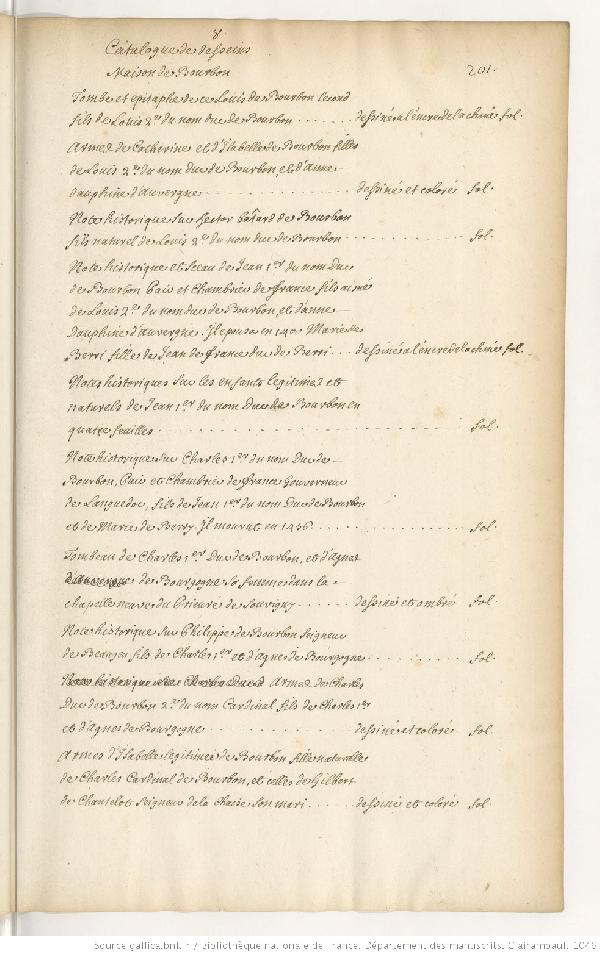 8.
Catalogue de desseins
Maison de Bourbon
201.
Tombe et epitaphe de ce Louis de Bourbon second
fils de Louis 2e du nom duc de Bourbon ....... dessiné al'encre de la chine fol.
Armes de Catherine et d'Isabelle de Bourbon filles
de Louis 2e du nom duc de Bourbon, et d'Anne
dauphine d'auvergne ............ dessiné et coloré fol.
Note historique sur hector bâtard de Bourbon
fils naturel de Louis 2e du nom duc de Bourbon ........... fol.
Note historique et sceau de Jean 1er du nom Duc
de Bourbon Pair et Chambrier de france fils aimé
de Louis 2e du nom duc de Bourbon, et d'anne
dauphine d'auvergne. Il epousa en 140. Marie de
Berri fille de Jean de france duc de Berri ... dessiné al'encre de la chine fol.
Notes historiques sur les enfants legitimes et
naturels de Jean 1er du nom Duc de Bourbon en
quatre feuilles ........................ fol.
Note historique sur Charles 1er du nom Duc de
Bourbon, Pair et Chambrier de france Gouverneur
de Languedoc, fils de Jean 1er du nom Duc de Bourbon
et de Marie de Berry. Il mourut en 1456 ............. fol.
Tombeau de Charles 1er Duc de Bourbon, et d'agnes
de Bourgogne sa femme dans la
chapelle neuve du Prieuré de Souvigny ...... dessiné et ombré fol.
Note historique sur Philippe de Bourbon seigneur
de Beaujeu fils de Charles 1er et d'agnes de Bourgogne ........ fol.
Armes de Charles
Duc de Bourbon 2e du nom Cardinal fils de Charles 1er
et d'Agnes de Bourgogne ............ dessiné et coloré fol.
Armes d'Isabelle legitimée de Bourbon fille naturelle
de Charles Cardinal de Bourbon, et celles de Gilbert
de Chantelot seigneur de la Chaise son mari ..... dessiné et coloré fol.
Source gallica.bnf.fr / Bibliothèque nationale de France. Département des manuscrits. Clairambault 1046